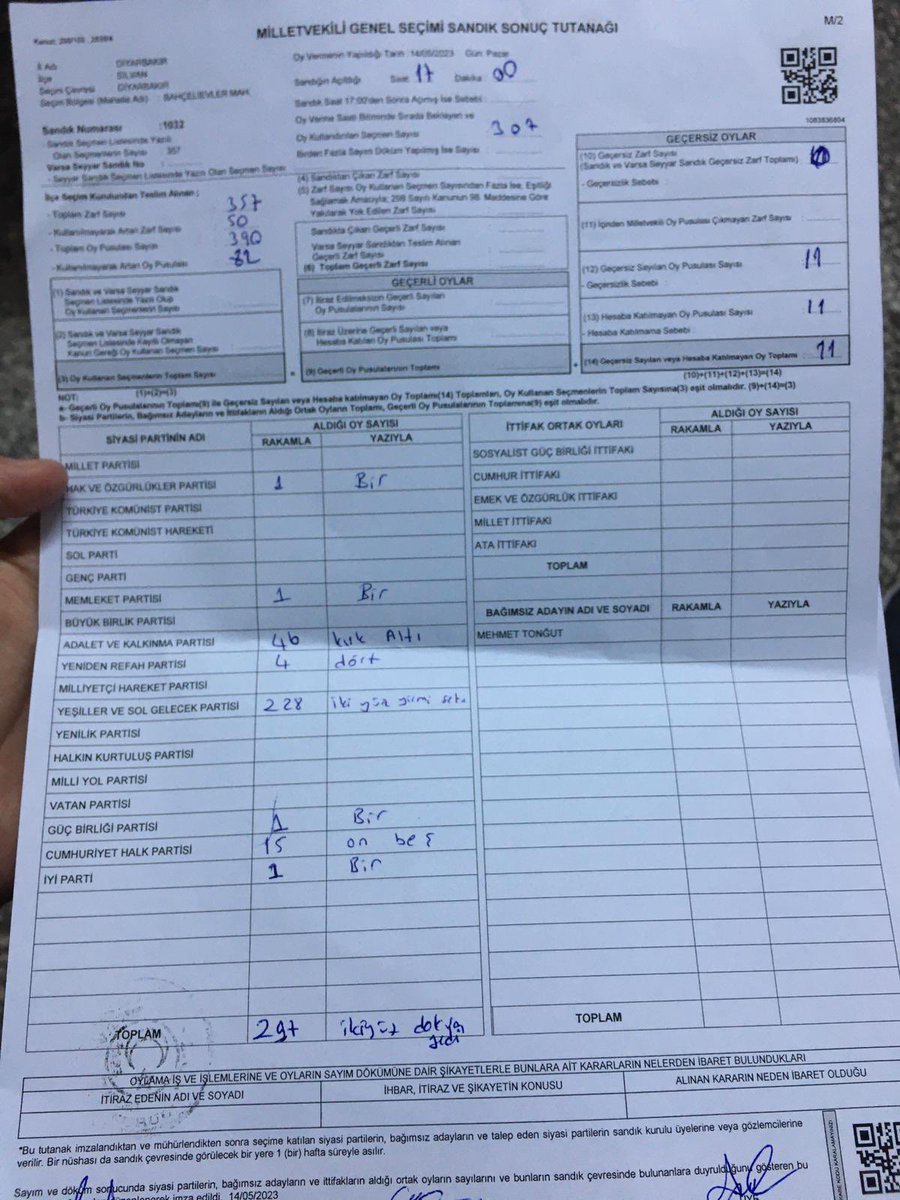 MİLLETVEKİLİ GENEL SEÇİMİ SANDIK SONUÇ TUTANAĞI
M/2
İl Adı DİYARBAKIR
İlçe SİLVAN
Seçim Çevresi DİYARBAKIR
Seçim Bölgesi (Mahalle Adı) : BAHÇELİEVLER MAH.
Sandık Numarası :1032
- Sandık Seçmen Listesinde Yazılı
Olan Seçmenlerin Sayısı 357
Varsa Seyyar Sandık No
- Seyyar Sandık Seçmen Listesinde Yazılı Olan Seçmen Sayısı
İlçe Seçim Kurulundan Teslim Alınan ;
- Toplam Zarf Sayısı 357
- Kullanılmayarak Artan Zarf Sayısı 50
- Toplam Oy Pusulası Sayısı 390
- Kullanılmayarak Artan Oy Pusulası 82
(1) Sandık ve Varsa Seyyar Sandık
Seçmen Listesinde Yazılı Olup
Oy Kullanan Seçmen Sayısı
(2) Sandık ve Varsa Seyyar Sandık
Seçmen Listesinde Kayıtlı Olmayan
Kanun Gereği Oy Kullanan Seçmen Sayısı
(3) Oy Kullanan Seçmenlerin Toplam Sayısı
(1)+(2)=(3)
Oy Vermenin Yapıldığı Tarih 14/05/2023 Gün Pazar
Sandığın Açıldığı Saat 17 Dakika 00
Sandık Saat 17:00'den Sonra Açılmış İse Sebebi :
Oy Verme Saati Bitiminde Sırada Bekleyen ve
Oy Kullandırılan Seçmen Sayısı 307
Birden Fazla Sayım Döküm Yapılmış İse Sayısı :
(4) Sandıktan Çıkan Zarf Sayısı
(5) Zarf Sayısı Oy Kullanan Seçmen Sayısından Fazla İse, Eşitliği
Sağlamak Amacıyla; 298 Sayılı Kanunun 98. Maddesine Göre
Yakılarak Yok Edilen Zarf Sayısı
Sandıkta Çıkan Geçerli Zarf Sayısı
Varsa Seyyar Sandıktan Teslim Alınan
Geçerli Zarf Sayısı
(6) Toplam Geçerli Zarf Sayısı
GEÇERLİ OYLAR
(7) İtiraz Edilmeksizin Geçerli Sayılan
Oy Pusulalarının Sayısı
(8) İtiraz Üzerine Geçerli Sayılan veya
Hesaba Katılan Oy Pusulası Toplamı
(9) Geçerli Oy Pusulalarının Toplamı
1083836804
GEÇERSİZ OYLAR
(10) Geçersiz Zarf Sayısı
(Sandık ve Varsa Seyyar Sandık Geçersiz Zarf Toplamı)
- Geçersizlik Sebebi :
(11) İçinden Milletvekili Oy Pusulası Çıkmayan Zarf Sayısı
(12) Geçersiz Sayılan Oy Pusulası Sayısı
- Geçersizlik Sebebi
(13) Hesaba Katılmayan Oy Pusulası Sayısı 11
- Hesaba Katılmama Sebebi
(14) Geçersiz Sayılan veya Hesaba Katılmayan Oy Toplamı 11
(10)+(11)+(12)+(13)=(14)
NOT:
a- Geçerli Oy Pusulalarının Toplamı(9) ile Geçersiz Sayılan veya Hesaba katılmayan Oy Toplamı(14) Toplamları, Oy Kullanan Seçmenlerin Toplam Sayısına(3) eşit olmalıdır. (9)+(14)=(3)
b- Siyasi Partilerin, Bağımsız Adayların ve İttifakların Aldığı Ortak Oyların Toplamı, Geçerli Oy Pusulalarının Toplamına(9) eşit olmalıdır.
SİYASİ PARTİNİN ADI
ALDIĞI OY SAYISI
RAKAMLA YAZIYLA
MİLLET PARTİSİ
HAK VE ÖZGÜRLÜKLER PARTİSİ 1 Bir
TÜRKİYE KOMÜNİST PARTİSİ
TÜRKİYE KOMÜNİST HAREKETİ
SOL PARTİ
GENÇ PARTİ
MEMLEKET PARTİSİ 1 Bir
BÜYÜK BİRLİK PARTİSİ
ADALET VE KALKINMA PARTİSİ 46 kırk Altı
YENİDEN REFAH PARTİSİ 4 dört
MİLLİYETÇİ HAREKET PARTİSİ
YEŞİLLER VE SOL GELECEK PARTİSİ 228 iki yüz yirmi
YENİLİK PARTİSİ
HALKIN KURTULUŞ PARTİSİ
MİLLİ YOL PARTİSİ
VATAN PARTİSİ
GÜÇ BİRLİĞİ PARTİSİ 1 Bir
CUMHURİYET HALK PARTİSİ 15 on beş
İYİ PARTİ 1 Bir
TOPLAM 297 ikiyüz doksan yedi
İTTİFAK ORTAK OYLARI
ALDIĞI OY SAYISI
RAKAMLA YAZIYLA
SOSYALİST GÜÇ BİRLİĞİ İTTİFAKI
CUMHUR İTTİFAKI
EMEK VE ÖZGÜRLÜK İTTİFAKI
MİLLET İTTİFAKI
ATA İTTİFAKI
TOPLAM
BAĞIMSIZ ADAYIN ADI VE SOYADI RAKAMLA YAZIYLA
MEHMET TONĞUT
TOPLAM
OYLAMA İŞ VE İŞLEMLERİNE VE OYLARIN SAYIM DÖKÜMÜNE DAİR ŞİKAYETLERLE BUNLARA AİT KARARLARIN NELERDEN İBARET BULUNDUKLARI
İTİRAZ EDENİN ADI VE SOYADI
İHBAR, İTİRAZ VE ŞİKAYETİN KONUSU
ALINAN KARARIN NEDEN İBARET OLDUĞU
*Bu tutanak imzalandıktan ve mühürlendikten sonra seçime katılan siyasi partilerin, bağımsız adayların ve talep eden siyasi partilerin sandık kurulu üyelerine veya gözlemcilerine
verilir. Bir nüshası da sandık çevresinde görülecek bir yere 1 (bir) hafta süreyle asılır.
Sayım ve döküm sonucunda siyasi partilerin, bağımsız adayların ve ittifakların aldığı ortak oyların sayılarını ve bunların sandık çevresinde bulunanlara duyrulduğunu gösteren bu
imza edildi. 14/05/2023